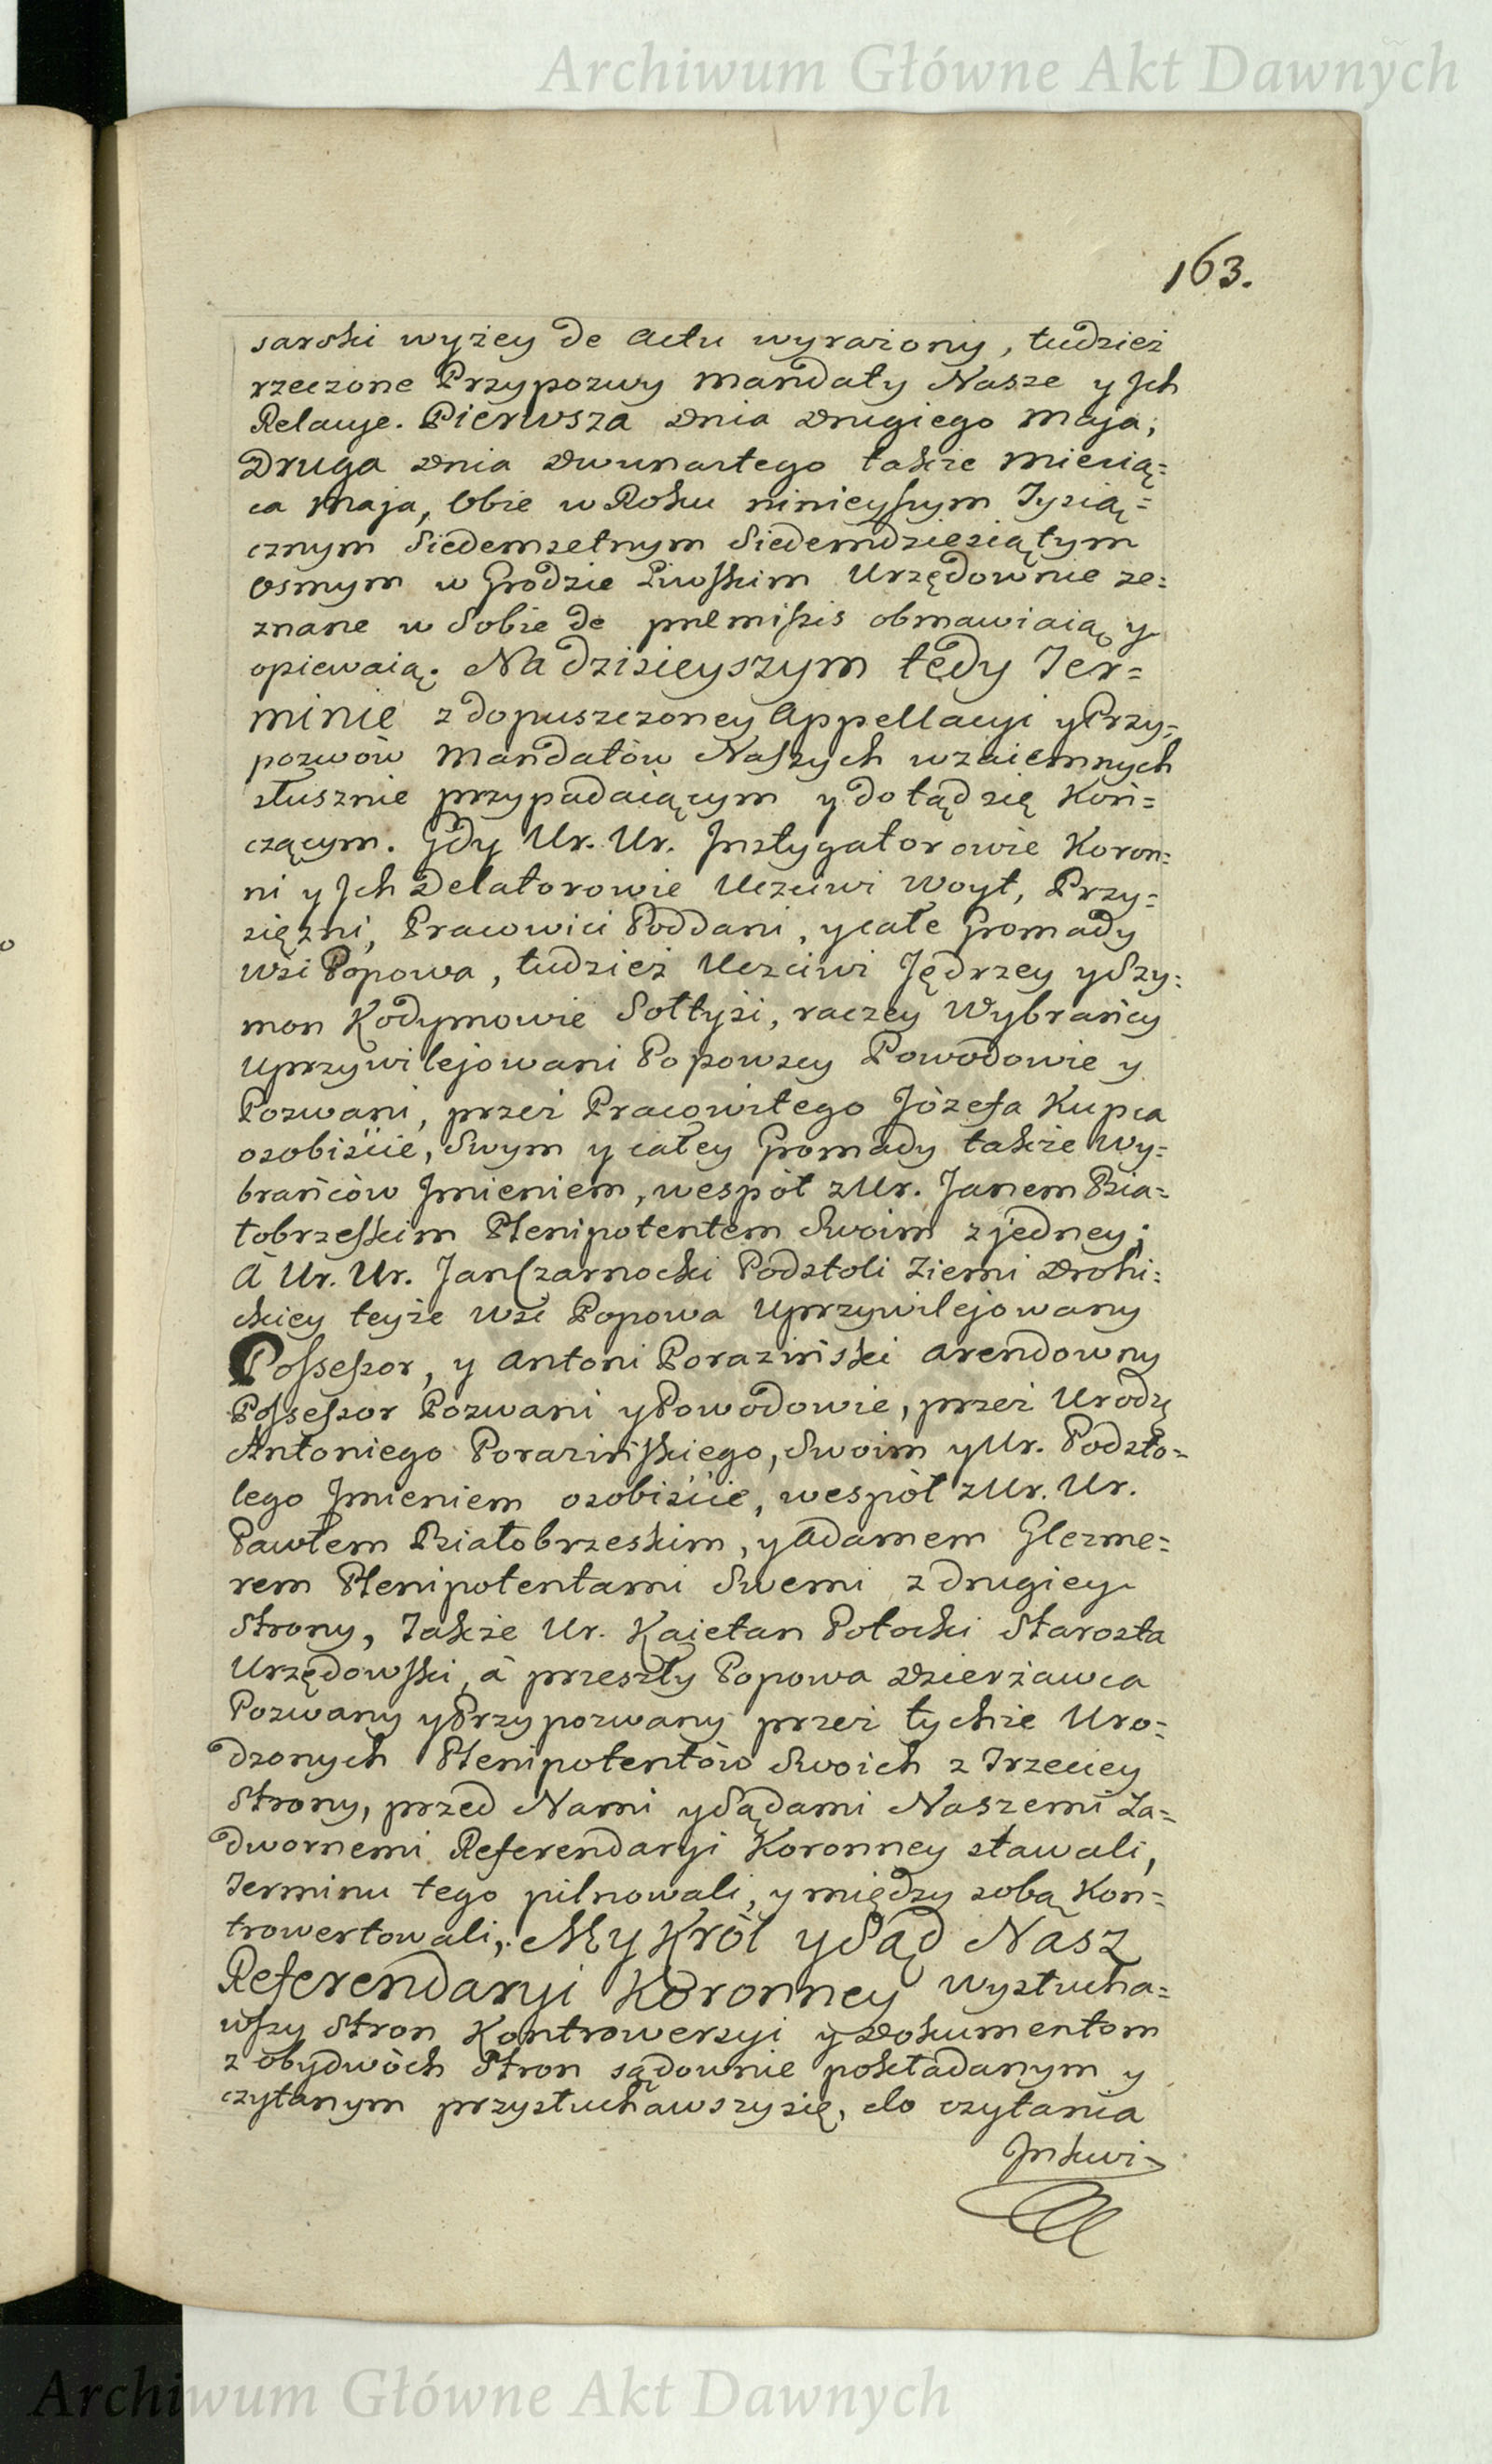 Archiwum Główne Akt Dawnych
163.
sarski wyżey de Actu wyrażony, tudzież
rzeczone Przypozwy Mandaty Nasze y Jch
Relacye. Pierwsza dnia drugiego Maja;
Druga dnia dwunastego także Miesią=
ca Maja, Obie w Roku ninieyszym Tysią=
cznym Siedemsetnym Siedemdziesiątym
Osmym w Grodzie Liwskim Urzędownie ze=
znane w Sobie de præmissis obmawiaią y
opiewaią. Na dzisieyszym tedy Ter=
minie z dopuszczoney Appellacyi y Przy=
pozwów Mandatów Naszych wzaiemnych
słusznie przypadaiącym y dotąd się Koń=
czącym. Gdy Ur. Ur. Jnstygatorowie Koron=
ni y Jch Delatorowie Uczciwi Woyt, Przy=
siężni, Pracowici Poddani, y całe Gromady
Wsi Popowa, tudzież Uczciwi Jędrzey y Szy=
mon Kodymowie Sołtysi, raczey Wybrańcy
Uprzywilejowani Popowscy Powodowie y
Pozwani, przez Pracowitego Józefa Kupca
osobiście, Swym y całey Gromady także Wy=
brańców Jmieniem, wespół z Ur. Janem Bia=
łobrzeskim Plenipotentem Swoim z jedney;
A Ur. Ur. Jan Czarnocki Podstoli Ziemi Drohi=
ckiey teyże Wsi Popowa Uprzywilejowany
Possessor, y Antoni Poraziński Arendowny
Possessor Pozwani y Powodowie, przez Urodz
Antoniego Porazińskiego, Swoim y Ur. Podsto=
lego Jmieniem osobiście, wespół z Ur. Ur.
Pawłem Białobrzeskim, y Adamem Glezme=
rem Plenipotentami Swemi z drugiey
Strony, Także Ur. Kaietan Potocki Starosta
Urzędowski, à przeszły Popowa Dzierżawca
Pozwany y Przypozwany przez tychże Uro=
dzonych Plenipotentów Swoich z Trzeciey
Strony, przed Nami y Sądami Naszemi Za=
dwornemi Referendaryi Koronney stawali,
Terminu tego pilnowali, y między sobą Kon=
trowertowali, My Król y Sąd Nasz
Referendaryi Koronney wysłucha=
wszy Stron Kontrowersyi y Dokumentom
z obydwóch Stron sądownie pokładanym y
czytanym przysłuchawszy się, do czytania
Jnkwi=
Archiwum Główne Akt Dawnych